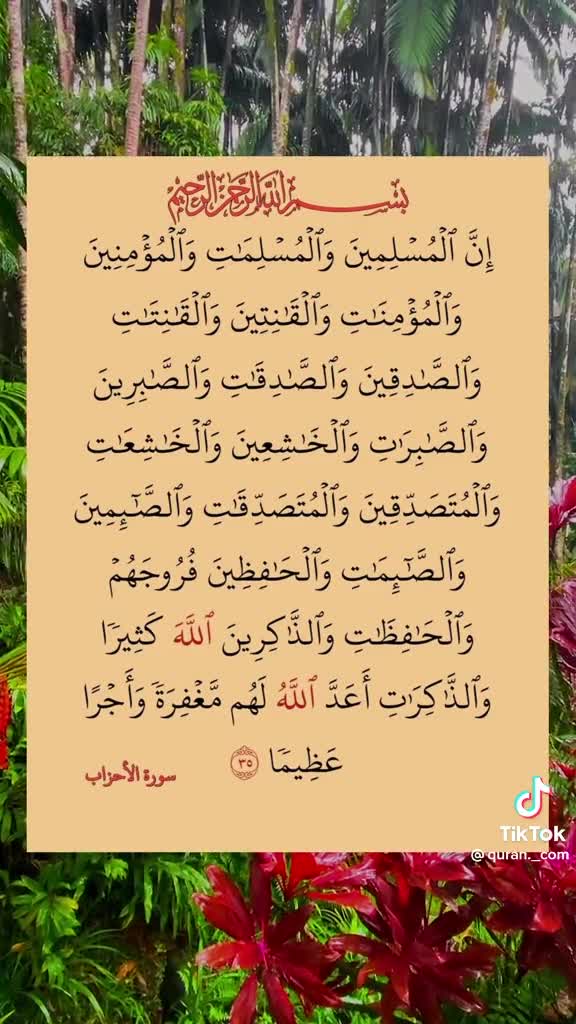 بِسْمِ اللَّهِ الرَّحْمَٰنِ الرَّحِيمِ
إِنَّ ٱلْمُسْلِمِينَ وَٱلْمُسْلِمَـٰتِ وَٱلْمُؤْمِنِينَ
وَٱلْمُؤْمِنَـٰتِ وَٱلْقَـٰنِتِينَ وَٱلْقَـٰنِتَـٰتِ
وَٱلصَّـٰدِقِينَ وَٱلصَّـٰدِقَـٰتِ وَٱلصَّـٰبِرِينَ
وَٱلصَّـٰبِرَٰتِ وَٱلْخَـٰشِعِينَ وَٱلْخَـٰشِعَـٰتِ
وَٱلْمُتَصَدِّقِينَ وَٱلْمُتَصَدِّقَـٰتِ وَٱلصَّـٰٓئِمِينَ
وَٱلصَّـٰٓئِمَـٰتِ وَٱلْحَـٰفِظِينَ فُرُوجَهُمْ
وَٱلْحَـٰفِظَـٰتِ وَٱلذَّٰكِرِينَ ٱللَّهَ كَثِيرًا
وَٱلذَّٰكِرَٰتِ أَعَدَّ ٱللَّهُ لَهُم مَّغْفِرَةً وَأَجْرًا
عَظِيمًا ٣٥
سورة الأحزاب
TikTok
@quran._com